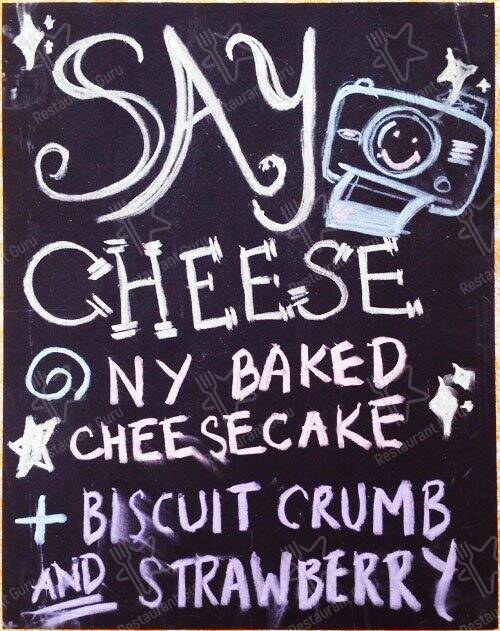 SAY
CHEESE
NY BAKED
CHEESECAKE
+ BISCUIT CRUMB
AND STRAWBERRY
Restaurant Guru